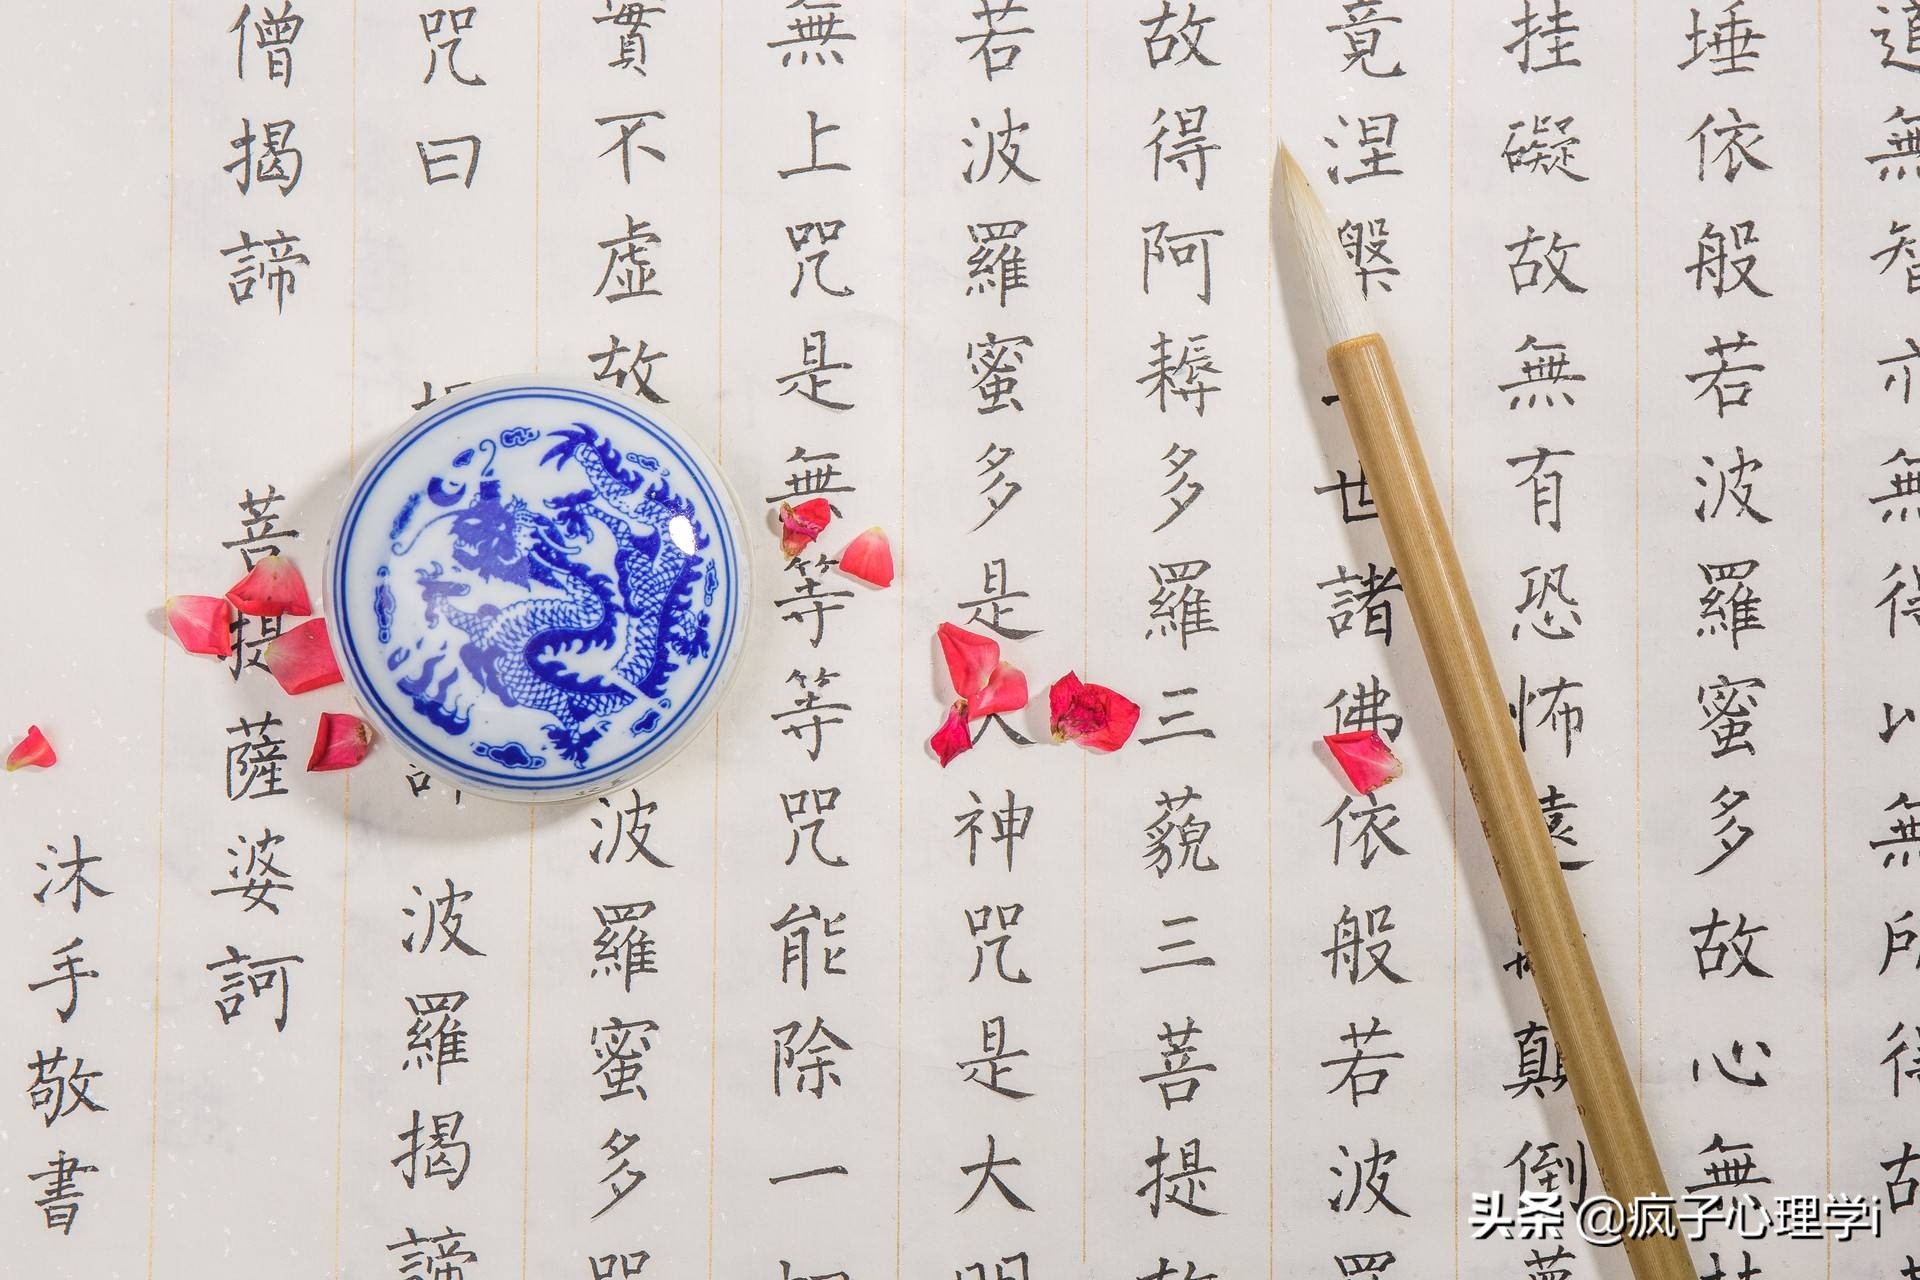 道無智亦無得以無所得故
埵依般若波羅蜜多故心無
挂礙故無有恐怖遠顛倒夢
竟涅槃世諸佛依般若波羅
故得阿耨多羅三藐三菩提故
若波羅蜜多是大神咒是大明
無上咒是無等等咒能除一切
實不虛故波羅蜜多咒
咒曰 波羅揭諦
僧揭諦 菩提薩婆訶
沐手敬書
头条 @疯子心理学i